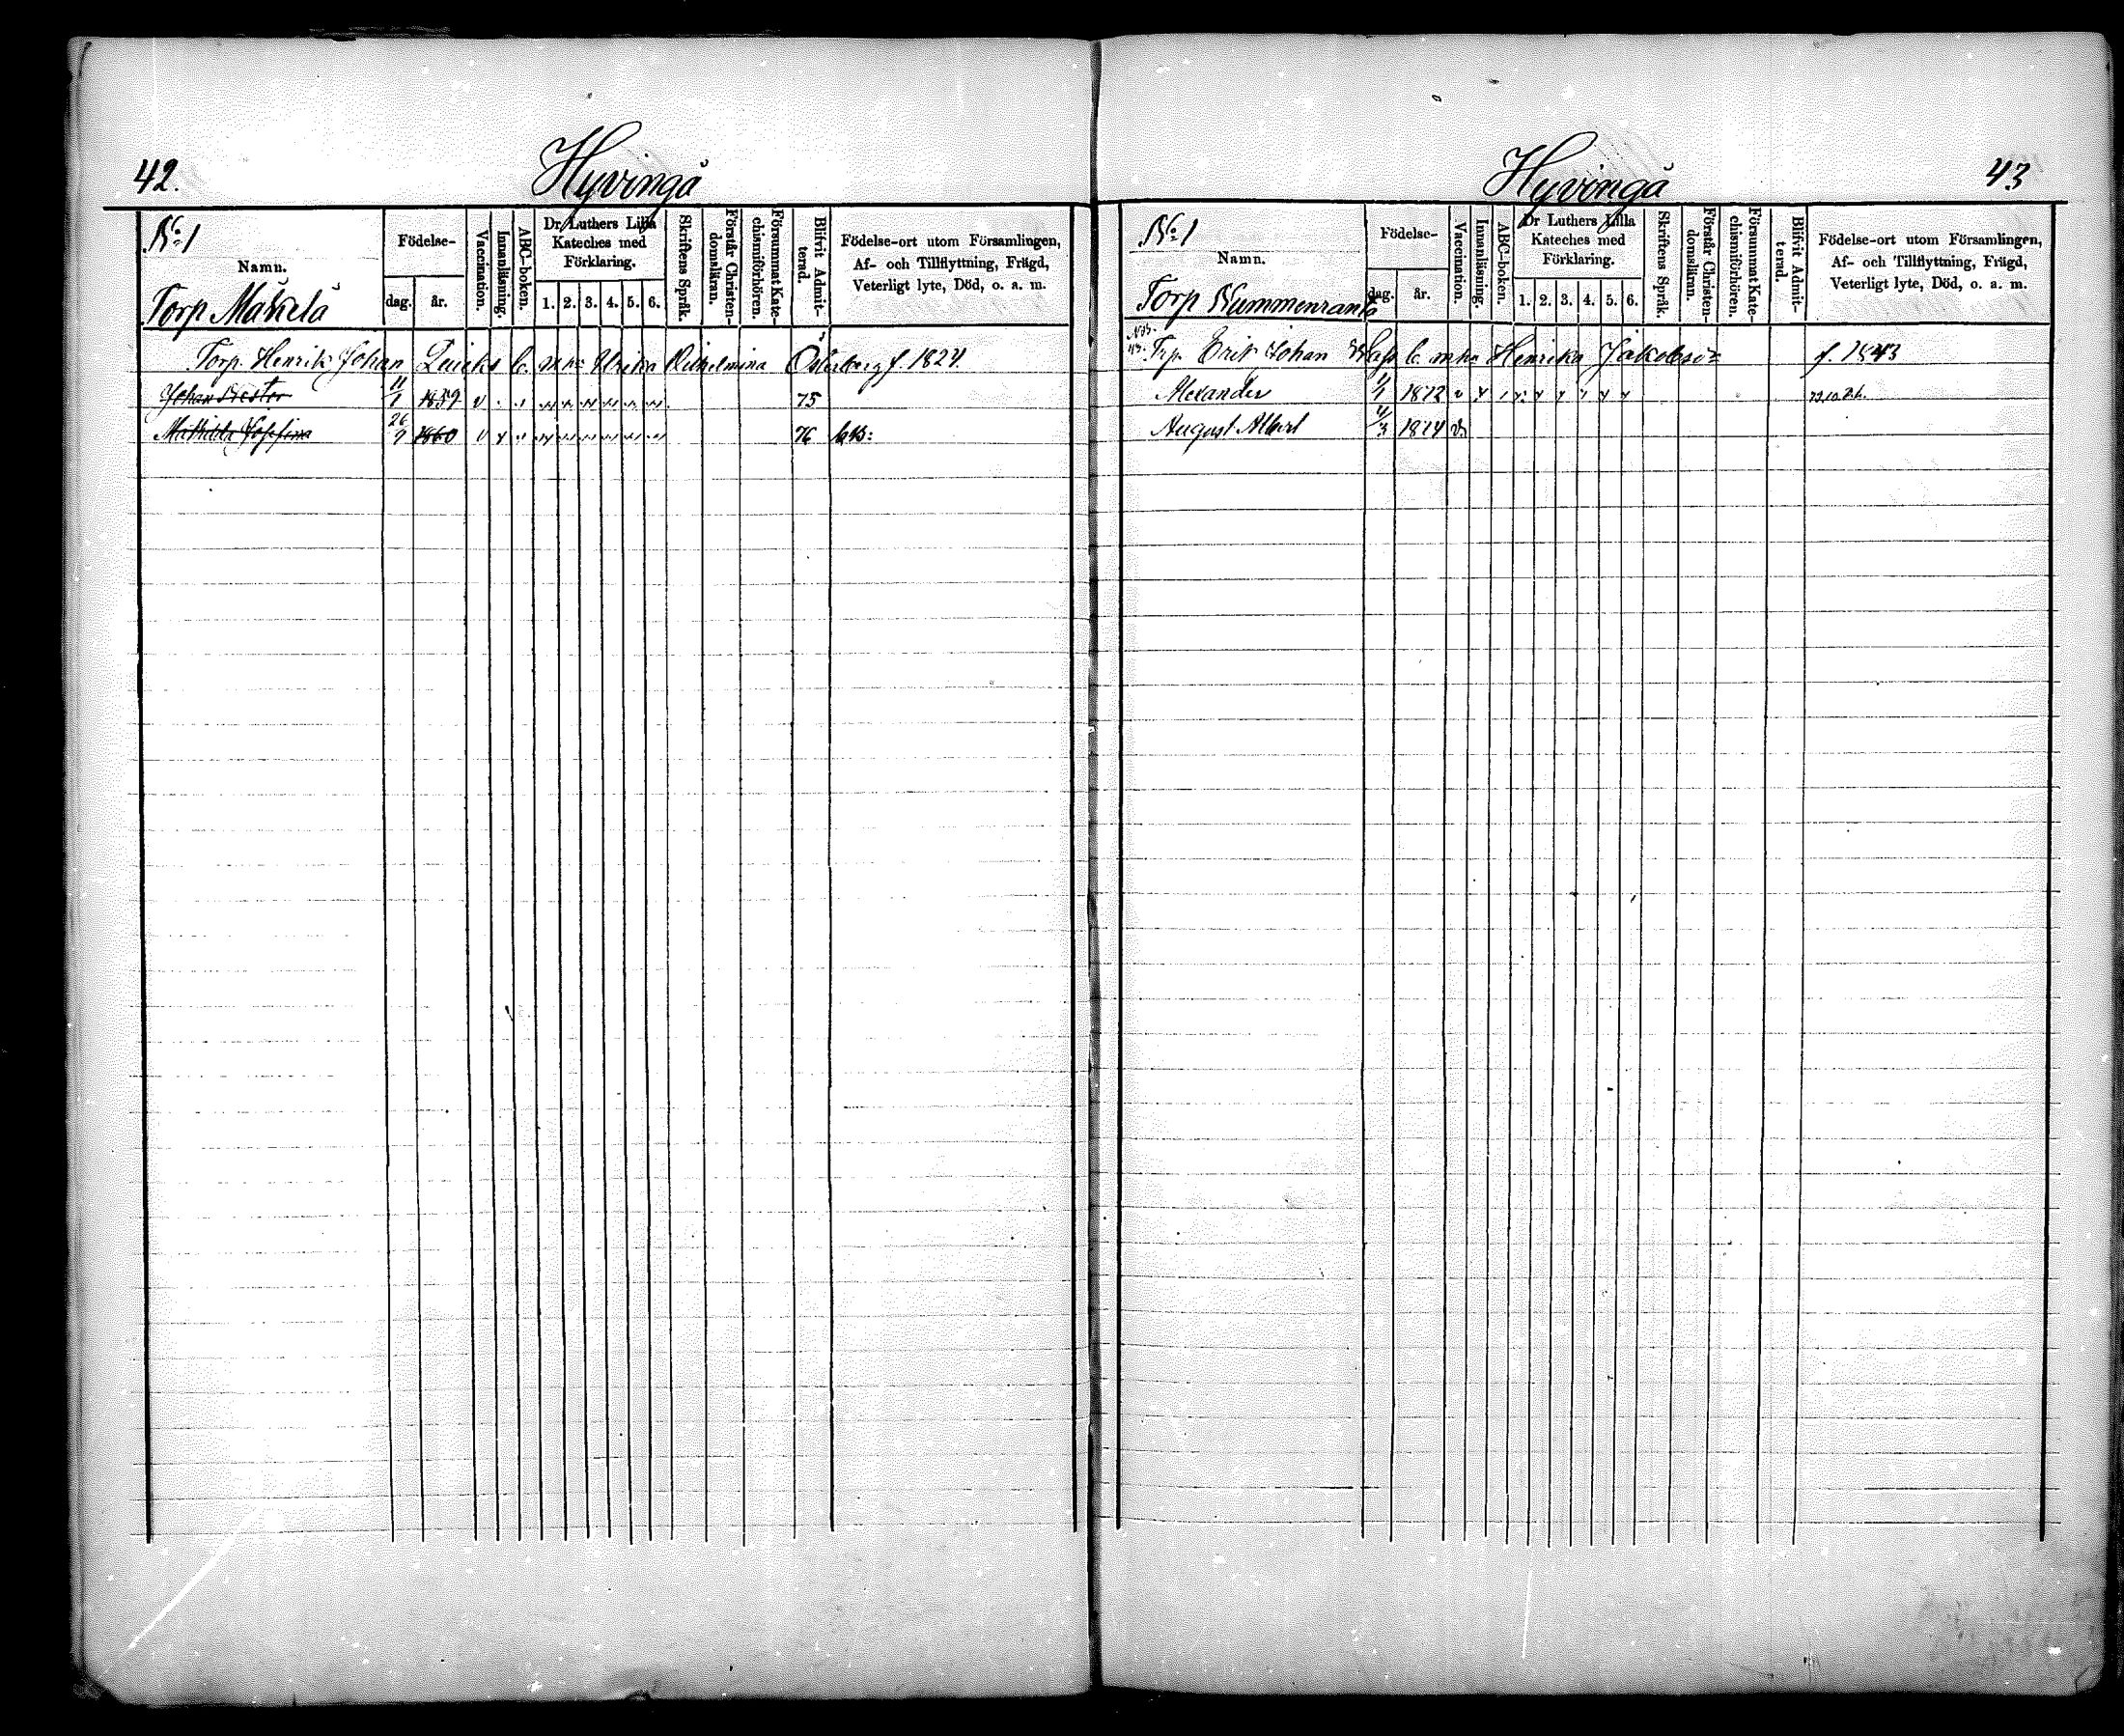 42.
Hyvingå
No 1
Namn.
Torp Mäkelä
Födelse-
dag.
år.
Vaccination.
Innanläsning.
ABC-boken.
Dr Luthers Lilla
Kateches med
Förklaring.
1. 2. 3. 4. 5. 6.
Skriftens Språk.
Förstår Christen-
domsläran.
Försummat Kate-
chismiförhören.
Blifvit Admit-
terad.
Födelse-ort utom Församlingen,
Af- och Tillflyttning, Frägd,
Veterligt lyte, Död, o. a. m.
Torp. Henrik Johan Quicks b. m. Ulrika Wilhelmina Österberg f. 1824.
Johan Nestor 11/1 1859 75
Mathilda Josefina 26/9 1860 76
43
Hyvingå
No 1
Namn.
Torp Nummenranta
Födelse-
dag.
år.
Vaccination.
Innanläsning.
ABC-boken.
Dr Luthers Lilla
Kateches med
Förklaring.
1. 2. 3. 4. 5. 6.
Skriftens Språk.
Förstår Christen-
domsläran.
Försummat Kate-
chismiförhören.
Blifvit Admit-
terad.
Födelse-ort utom Församlingen,
Af- och Tillflyttning, Frägd,
Veterligt lyte, Död, o. a. m.
Trp. Erik Johan b. m. Henrika Jakobs f. 1843
Alexander 1/1 1872
August Albert 4/3 1874